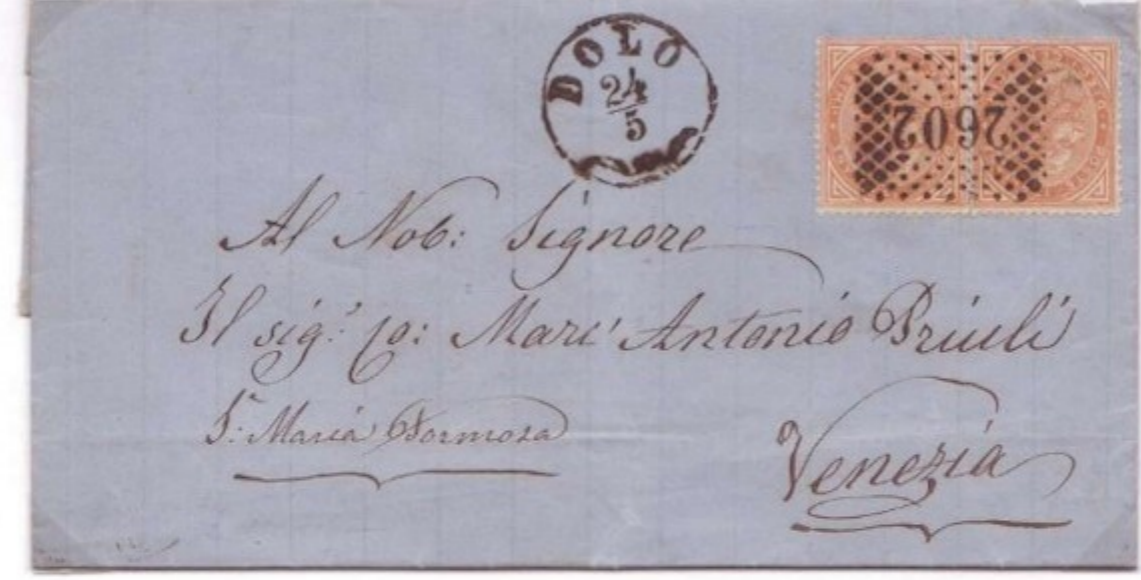 DOLO
24
5
2602
Al Nob: Signore
Il sig.r Co: Marc' Antonio Priuli
S.a Maria Formosa
Venezia